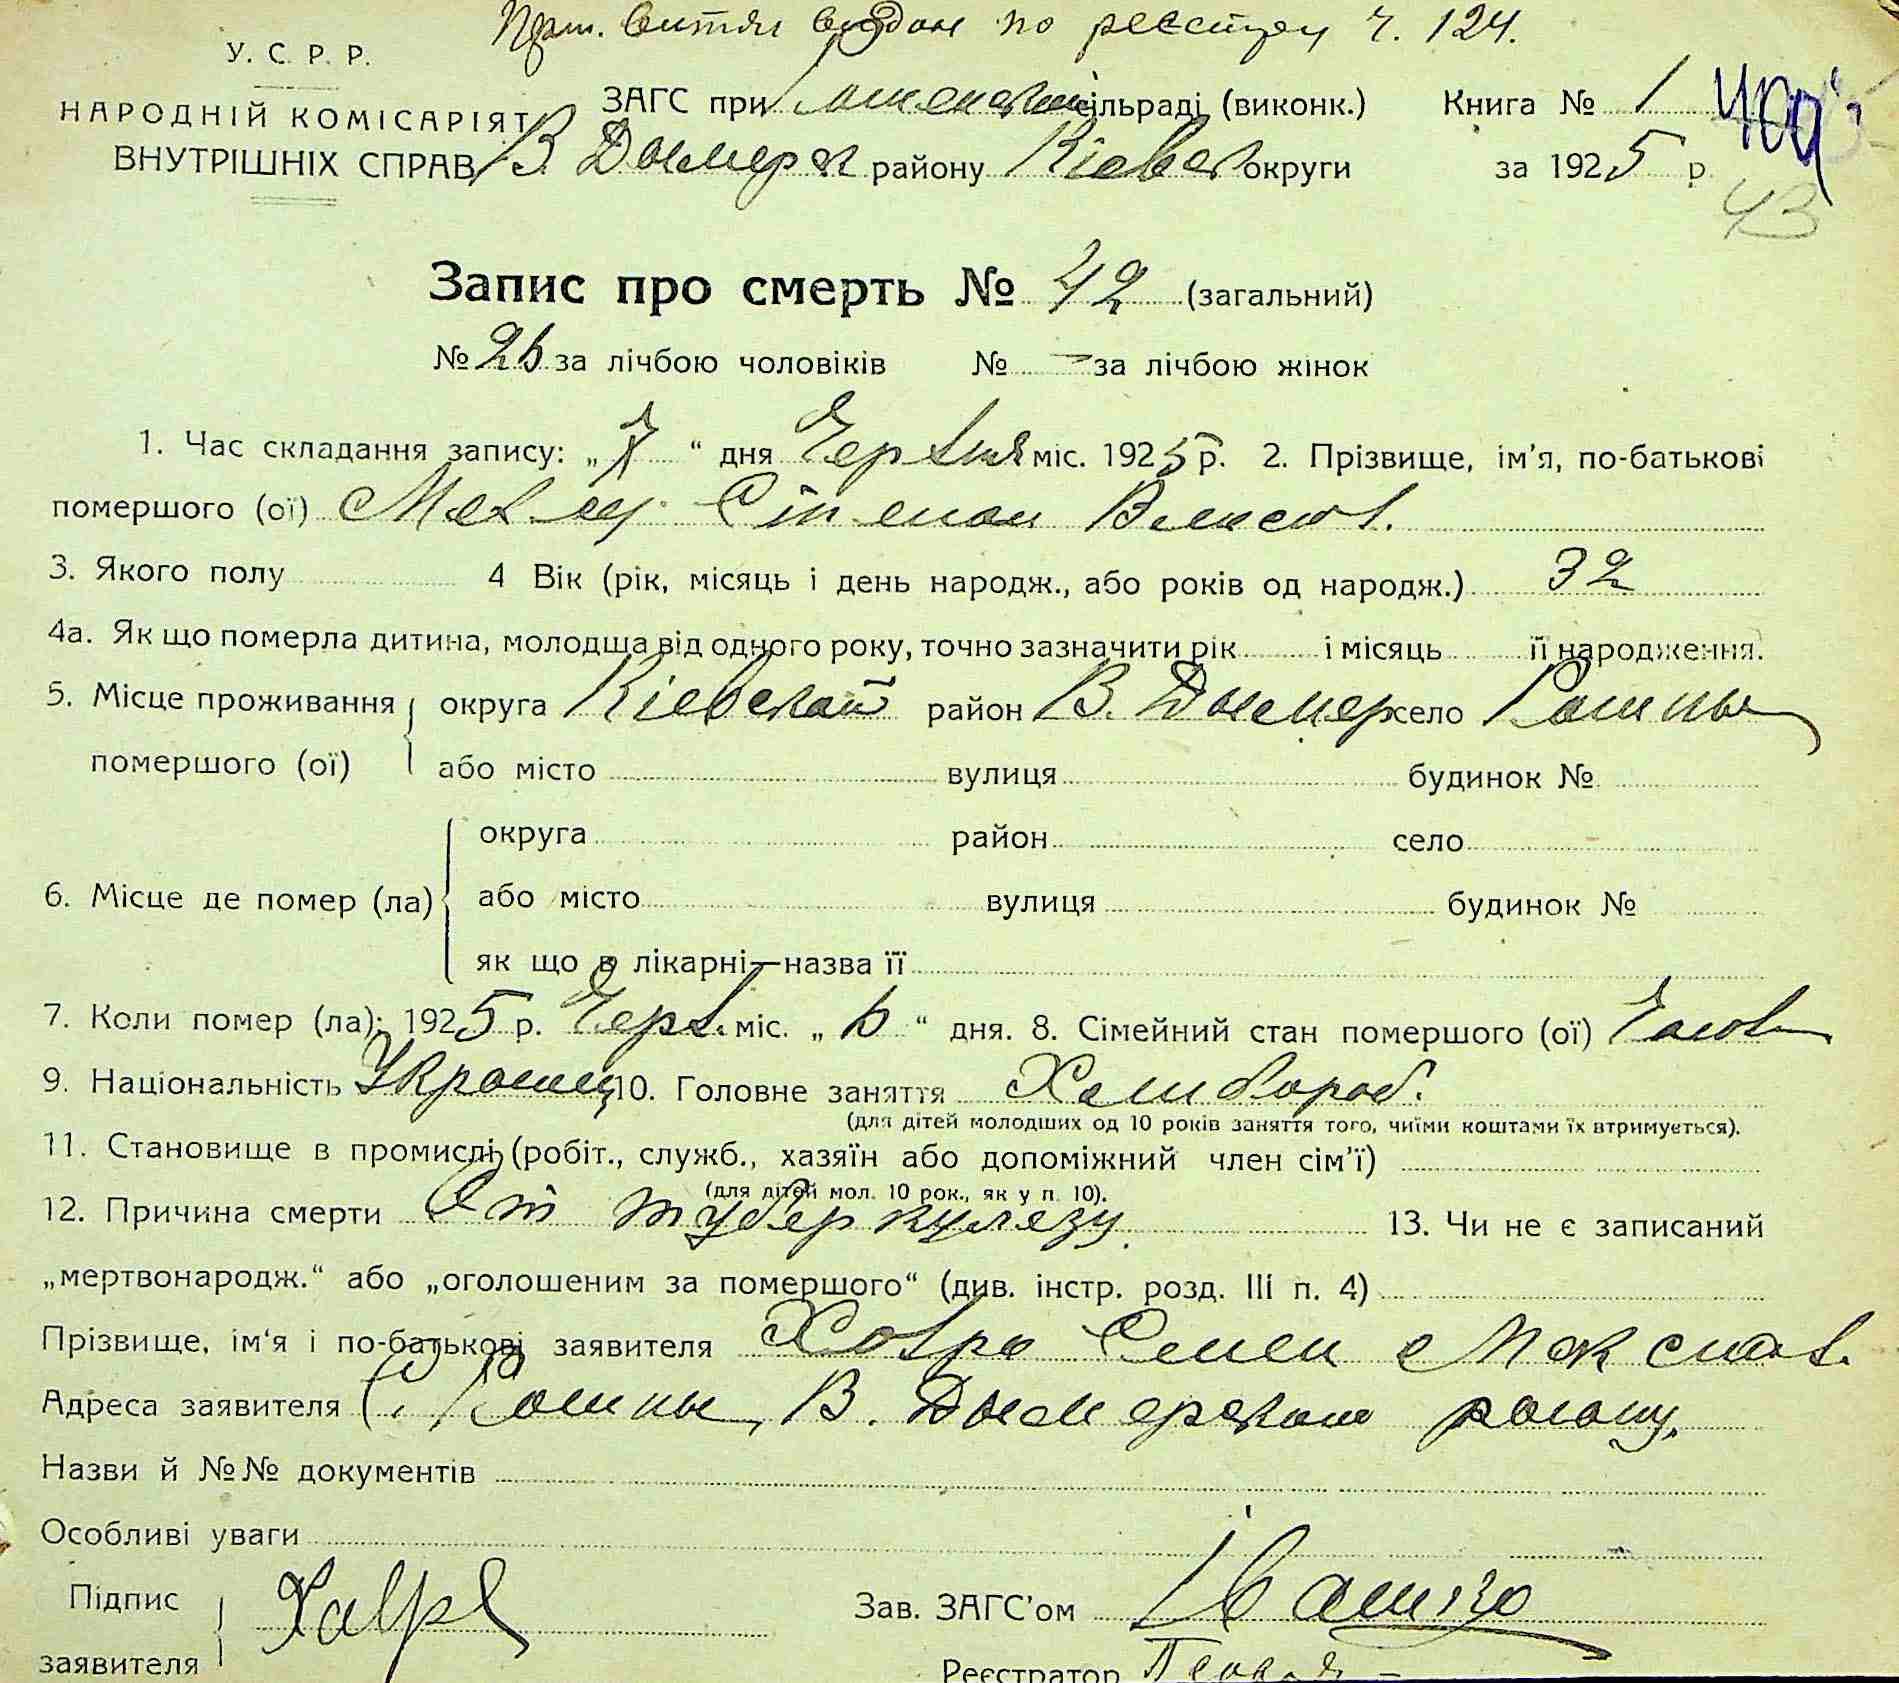 витяг видан по реєстру ч. 124.
У. С. Р. Р.
НАРОДНІЙ КОМІСАРІЯТ
ВНУТРІШНІХ СПРАВ
ЗАГС при сільраді (виконк.) Книга № 1
В Дымерск району Кіевск округи за 1925 р.
43
Запис про смерть № 42 (загальний)
№ 26 за лічбою чоловіків № – за лічбою жінок
1. Час складання запису: „7“ дня Червня міс. 1925 р. 2. Прізвище, ім'я, по-батькові
помершого (ої)
3. Якого полу 4 Вік (рік, місяць і день народж., або років од народж.) 32
4а. Як що померла дитина, молодша від одного року, точно зазначити рік і місяць її народження.
5. Місце проживання помершого (ої) округа Кіевской район В. Дымер село
або місто вулиця будинок №
6. Місце де помер (ла) округа район село
або місто вулиця будинок №
як що в лікарні—назва її
7. Коли помер (ла): 1925 р. Черв. міс. „6“ дня. 8. Сімейний стан помершого (ої)
9. Національність Украинец 10. Головне заняття Хлибороб.
(для дітей молодших од 10 років заняття того, чиїми коштами їх втримується).
11. Становище в промислі (робіт., служб., хазяїн або допоміжний член сім'ї)
(для дітей мол. 10 рок., як у п. 10).
12. Причина смерти От туберкулезу. 13. Чи не є записаний
„мертвонародж.“ або „оголошеним за помершого“ (див. інстр. розд. III п. 4)
Прізвище, ім'я і по-батькові заявителя Ховра Семен Максимов.
Адреса заявителя В. Дымерского району.
Назви й №№ документів
Особливі уваги
Підпис заявителя Зав. ЗАГС'ом
Реєстратор